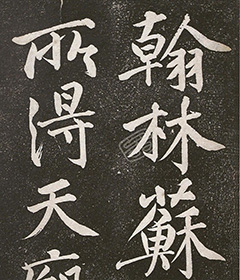 翰林蘇
所得天